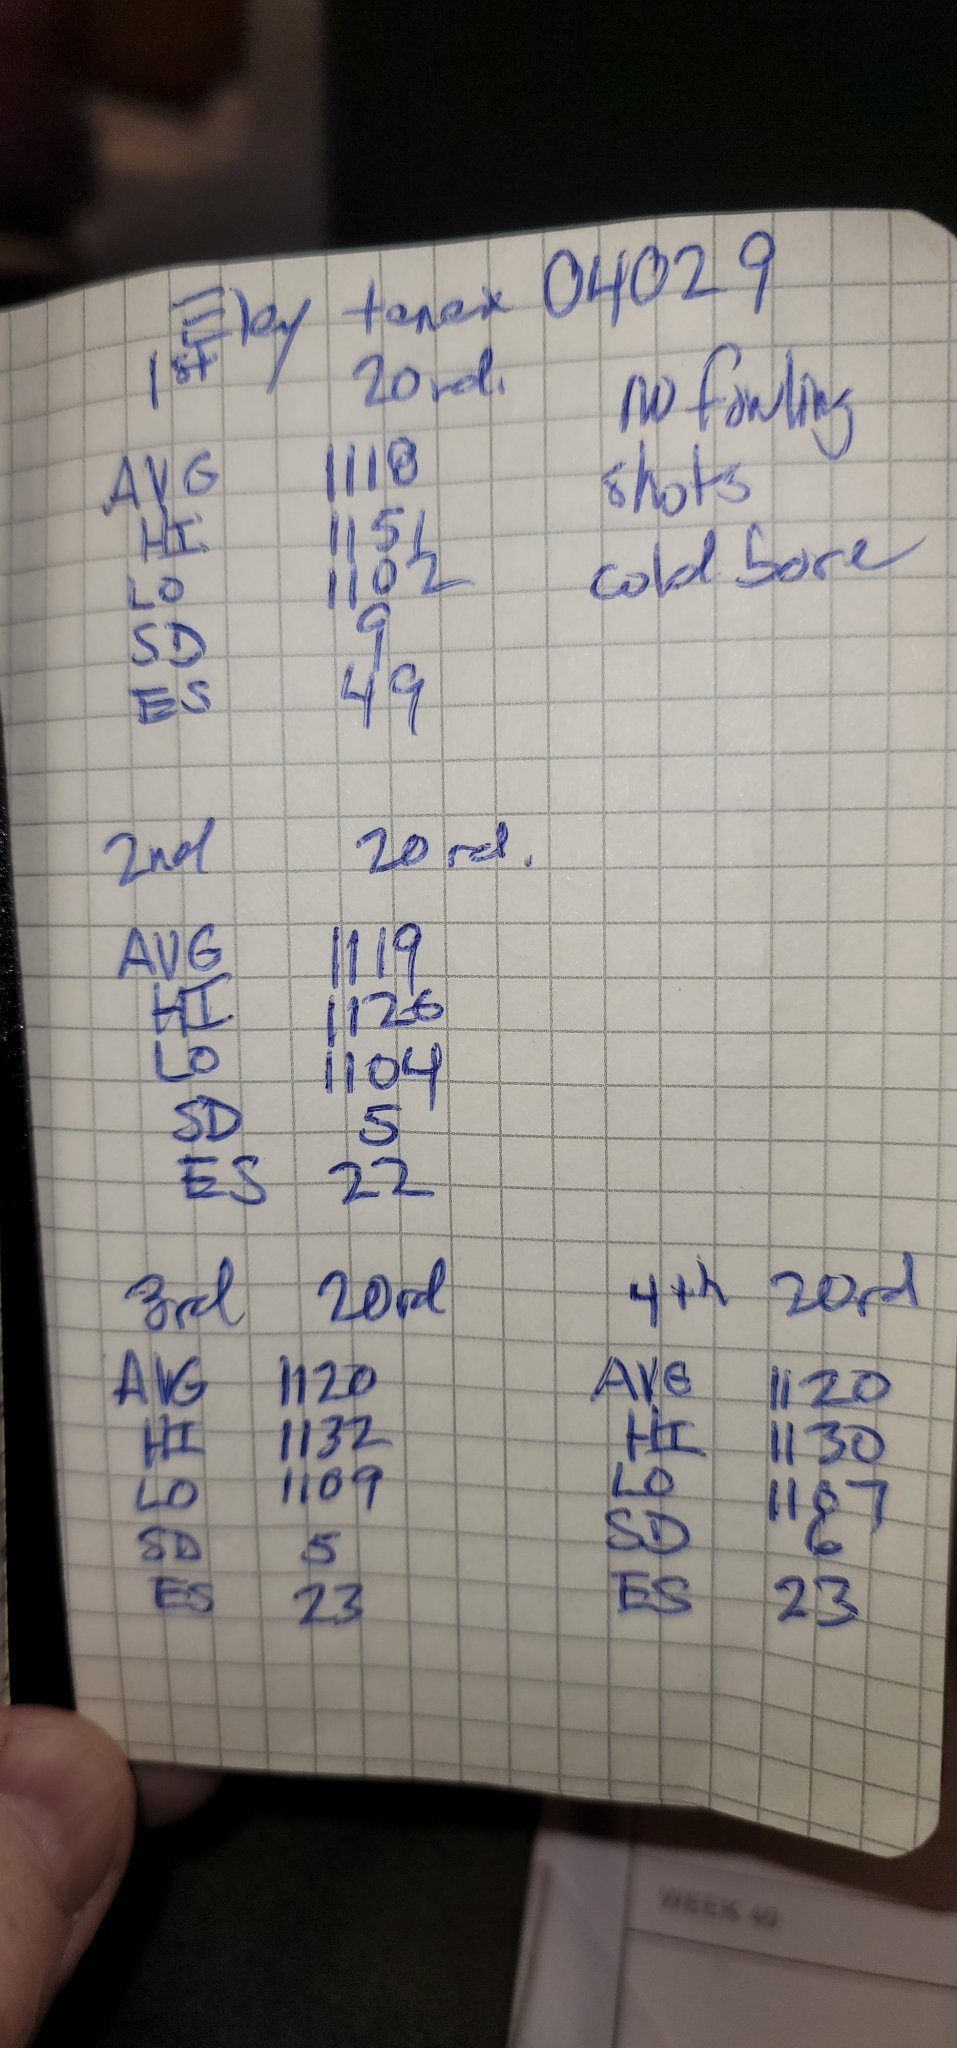 Eley tenex 04029
1st 20rd. no fowling
shots
cold bore
AVG 1118
HI 1151
LO 1102
SD 9
ES 49
2nd 20rd.
AVG 1119
HI 1126
LO 1104
SD 5
ES 22
3rd 20rd
AVG 1120
HI 1132
LO 1109
SD 5
ES 23
4th 20rd
AVG 1120
HI 1130
LO 1107
SD 6
ES 23
WEEK 40